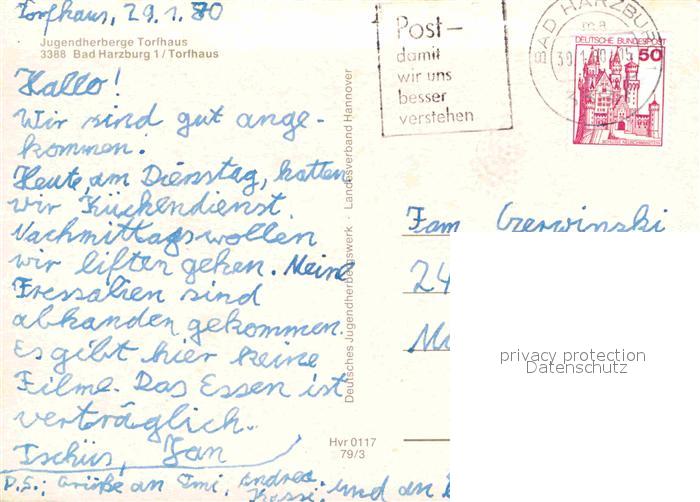 Torfhaus, 29.1.80
Jugendherberge Torfhaus
3388 Bad Harzburg 1 / Torfhaus
Hallo!
Wir sind gut ange-
kommen!
Heute, am Dienstag, hatten
wir Küchendienst.
Nachmittags wollen
wir liften gehen. Meine
Fressalien sind
abhanden gekommen.
Es gibt hier keine
Filme. Das Essen ist
verträglich.
Tschüs, Jan
P.S.: Grüße an Imi, Andrea,
und an
Deutsches Jugendherbergswerk · Landesverband Hannover
Hvr 0117
79/3
Post-
damit
wir uns
besser
verstehen
BAD HARZBURG
DEUTSCHE BUNDESPOST
50
Fam Czerwinski
24
privacy protection
Datenschutz